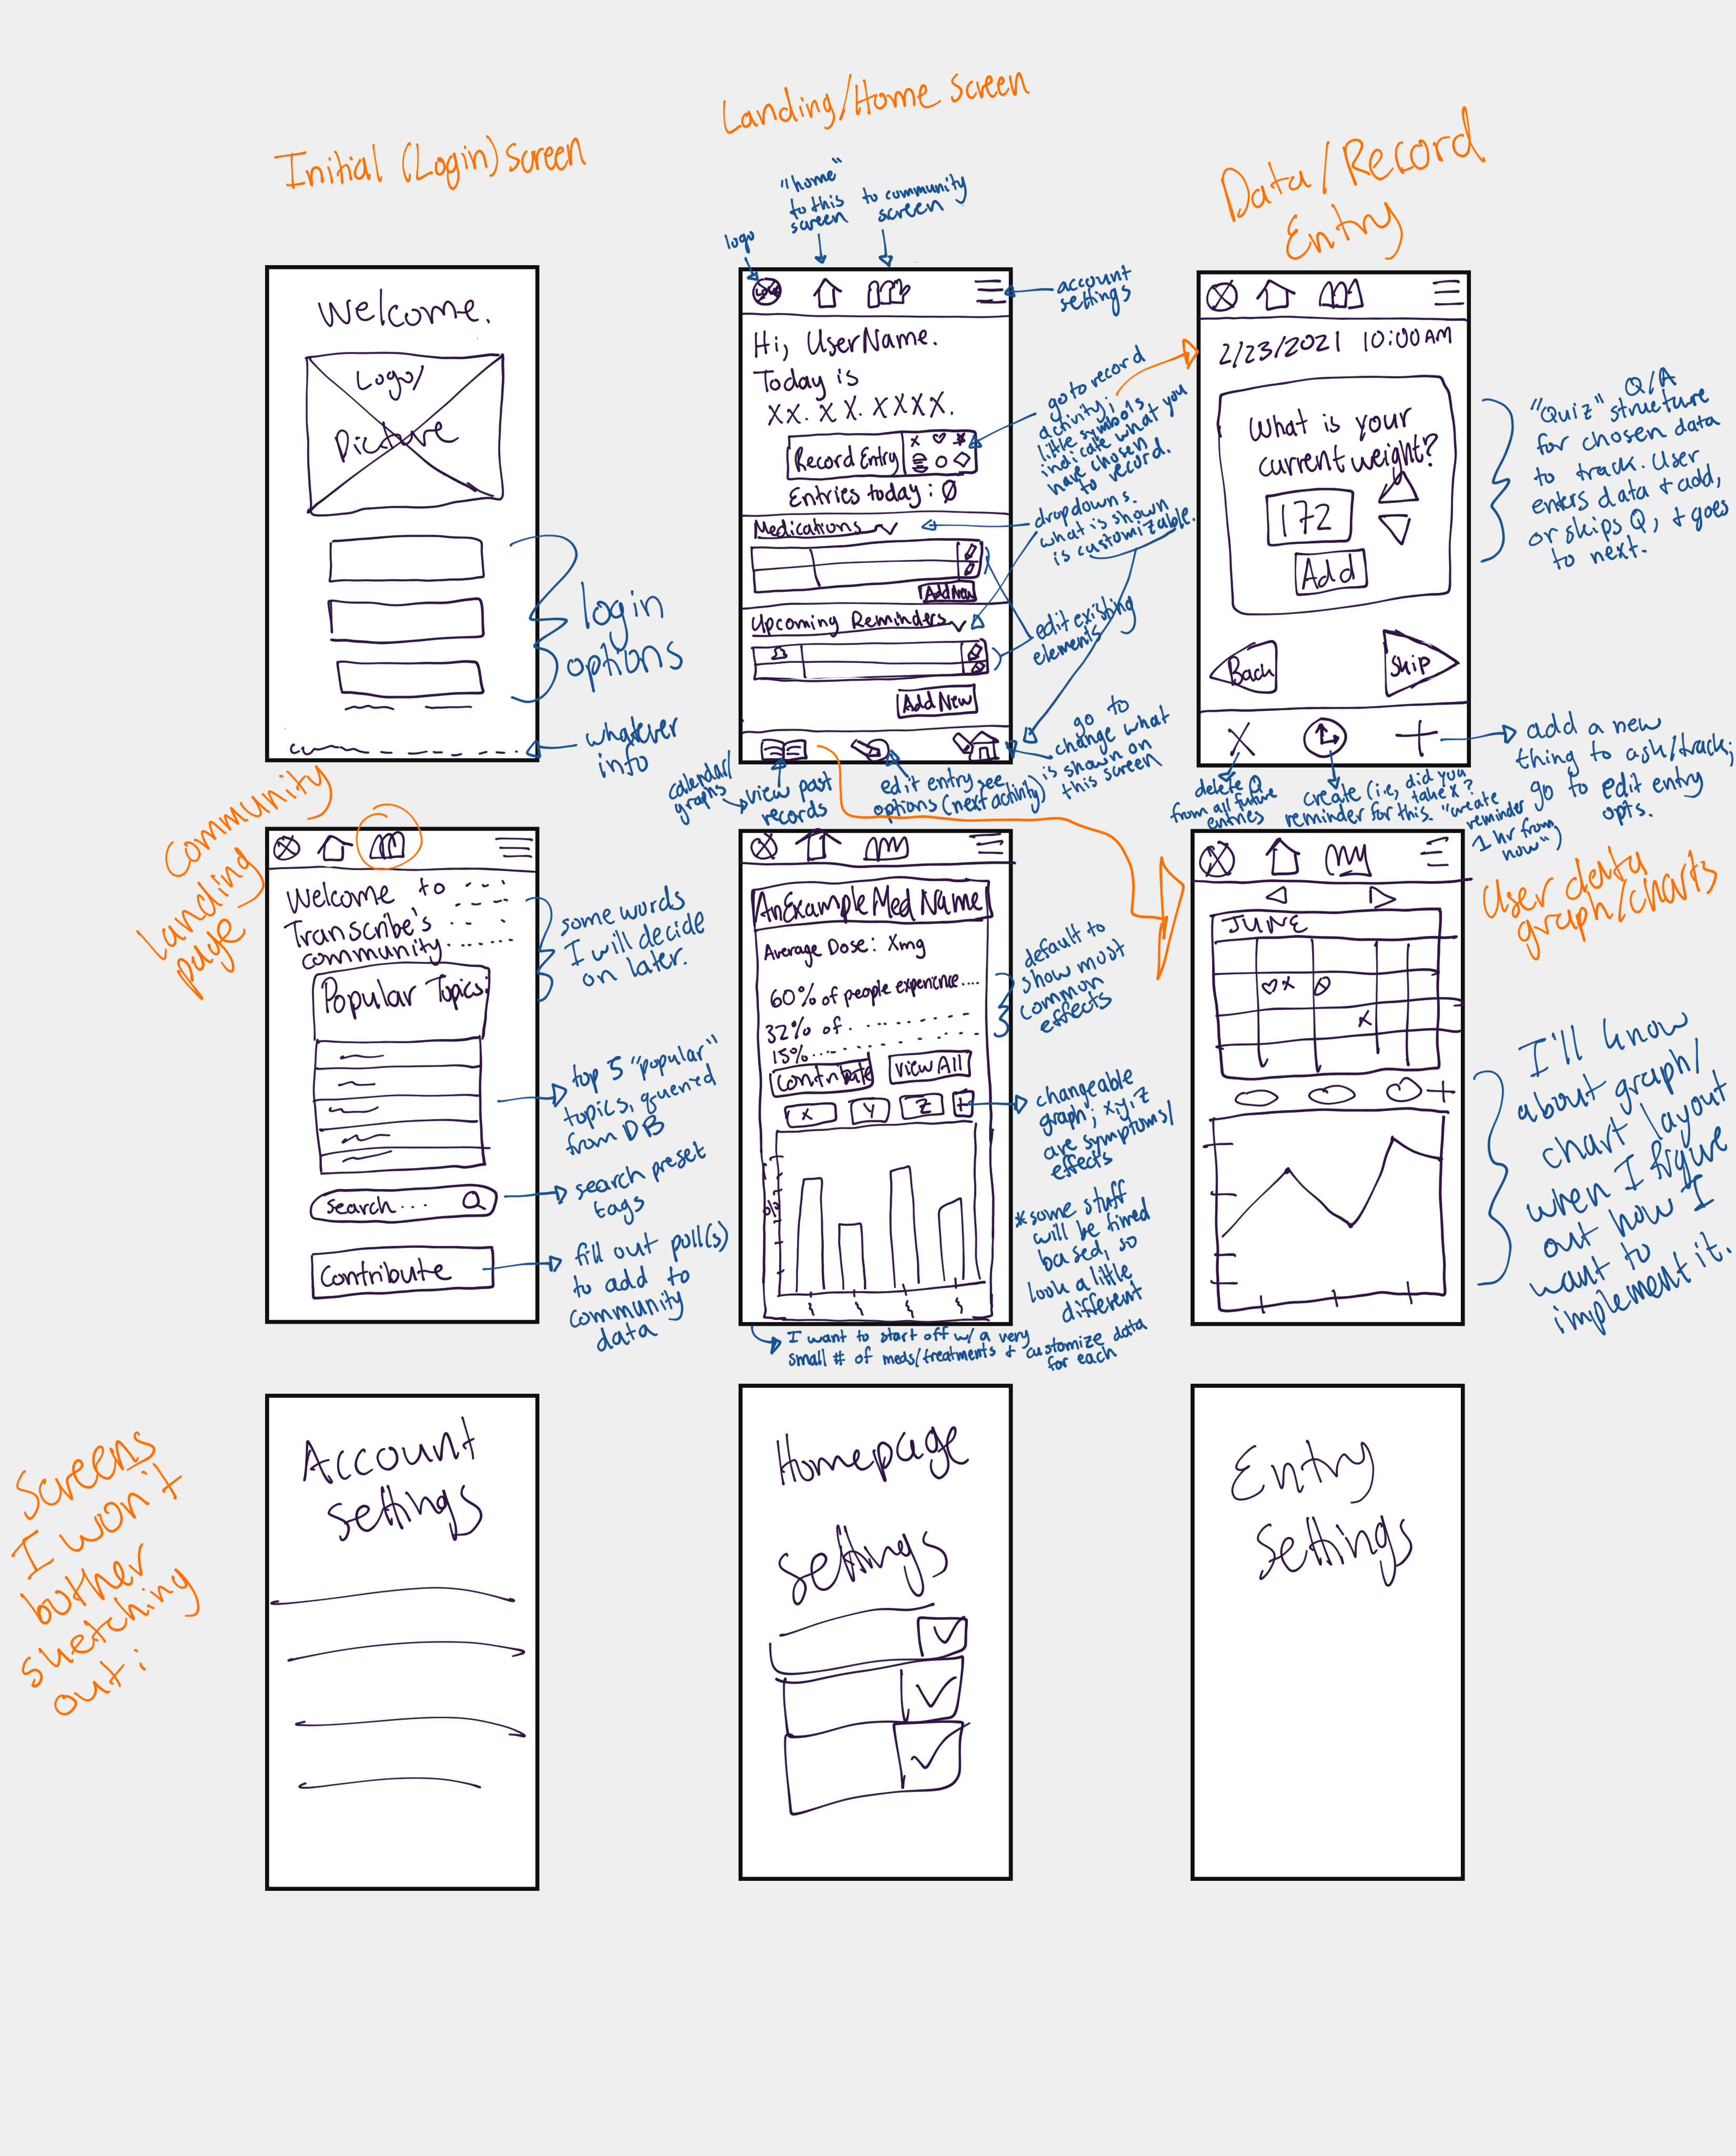 Initial (Login) Screen
Welcome.
Logo/
Picture
login
options
whatever
info
Landing/Home Screen
logo
"home"
to this
screen
to community
screen
account
settings
LOGO
Hi, UserName.
Today is
XX. XX. XXXX.
Record Entry
Entries today: 0
Medications
Add New
Upcoming Reminders
Add New
go to record
activity;
little symbols
indicate what you
have chosen
to record.
dropdowns.
what is shown
is customizable.
edit existing
elements
go to
change what
is shown on
this screen
edit entry see
options (next activity)
view past
records
calendar/
graphs
Data/Record
Entry
2/23/2021 10:00 AM
What is your
current weight?
172
Add
Back
Skip
"Quiz" Q/A
structure
for chosen data
to track. User
enters data + add,
or skips Q, + goes
to next.
delete Q
from all future
entries
create (i.e., did you
take x?
reminder for this. "create
reminder
1 hr from
now")
add a new
thing to ask/track;
go to edit entry
opts.
Community
Landing
page
Welcome to
Transcribe's
community
Popular Topics:
Search...
Contribute
some words
I will decide
on later.
top 5 "popular"
topics, queried
from DB
search preset
tags
fill out poll(s)
to add to
community
data
An Example Med Name
Average Dose: Xmg
60% of people experience....
32% of
15%
Contribute
View All
X
Y
Z
+
%
default to
show most
common
effects
changeable
graph; x,y,z
are symptoms/
effects
*some stuff
will be timed
based, so
look a little
different
I want to start off w/ a very
small # of meds/treatments + customize data
for each
User data
graph/charts
JUNE
I'll know
about graph/
chart layout
when I figure
out how I
want to
implement it.
Screens
I won't
bother
sketching
out:
Account
settings
Homepage
settings
Entry
Settings